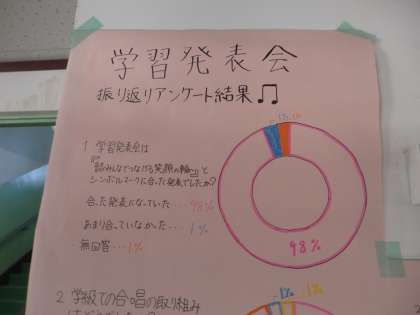 学習発表会
振り返りアンケート結果♫
1 学習発表会は
『踏みんなでつなげる笑顔の輪』と
シンボルマークに合った発表でしたか?
合った発表になっていた・・・98%
あまり合っていなかった・・・1%
無回答・・・1%
1% 1%
98%
2 学級での合唱の取り組み
1% 1%